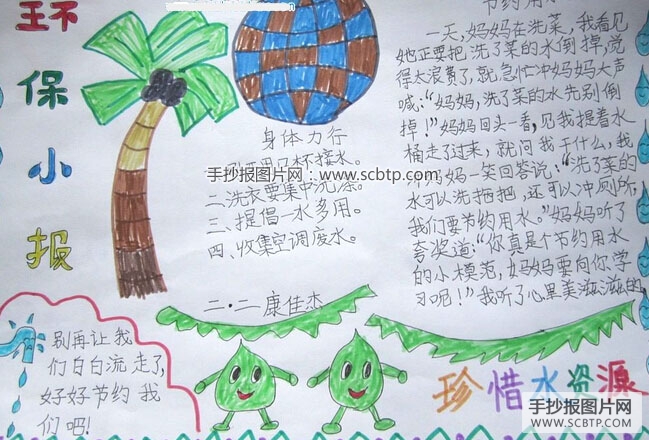 环保小报
身体力行
一、刷牙要口杯接水。
二、洗衣要集中洗涤。
三、提倡一水多用。
四、收集空调废水。
二·二 康佳杰
节约用水
一天,妈妈在洗菜,我看见
她正要把洗了菜的水倒掉,觉
得太浪费了,就急忙冲妈妈大声
喊:“妈妈,洗了菜的水先别倒
掉!”妈妈回头一看,见我提着水
桶走了过来,就问我干什么,我
冲妈妈一笑回答说:“洗了菜的
水可以洗拖把,还可以冲厕所,
我们要节约用水。”妈妈听了
夸奖道:“你真是个节约用水
的小模范,妈妈要向你学
习呢!”我听了心里美滋滋的
别再让我
们白白流走了,
好好节约我
们吧!
珍惜水资源
手抄报图片网 www.scbtp.com
手抄报图片网
WWW.SCBTP.COM